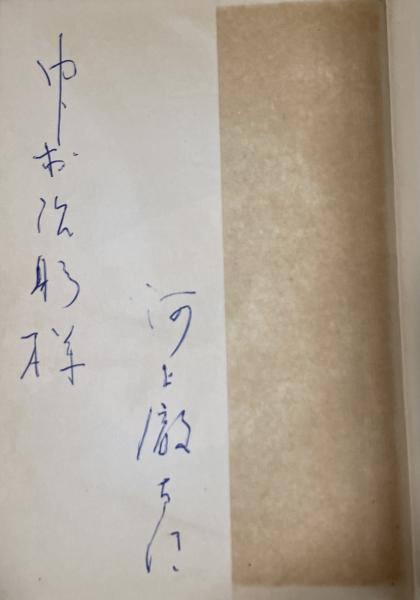 河上徹太郎
中村様